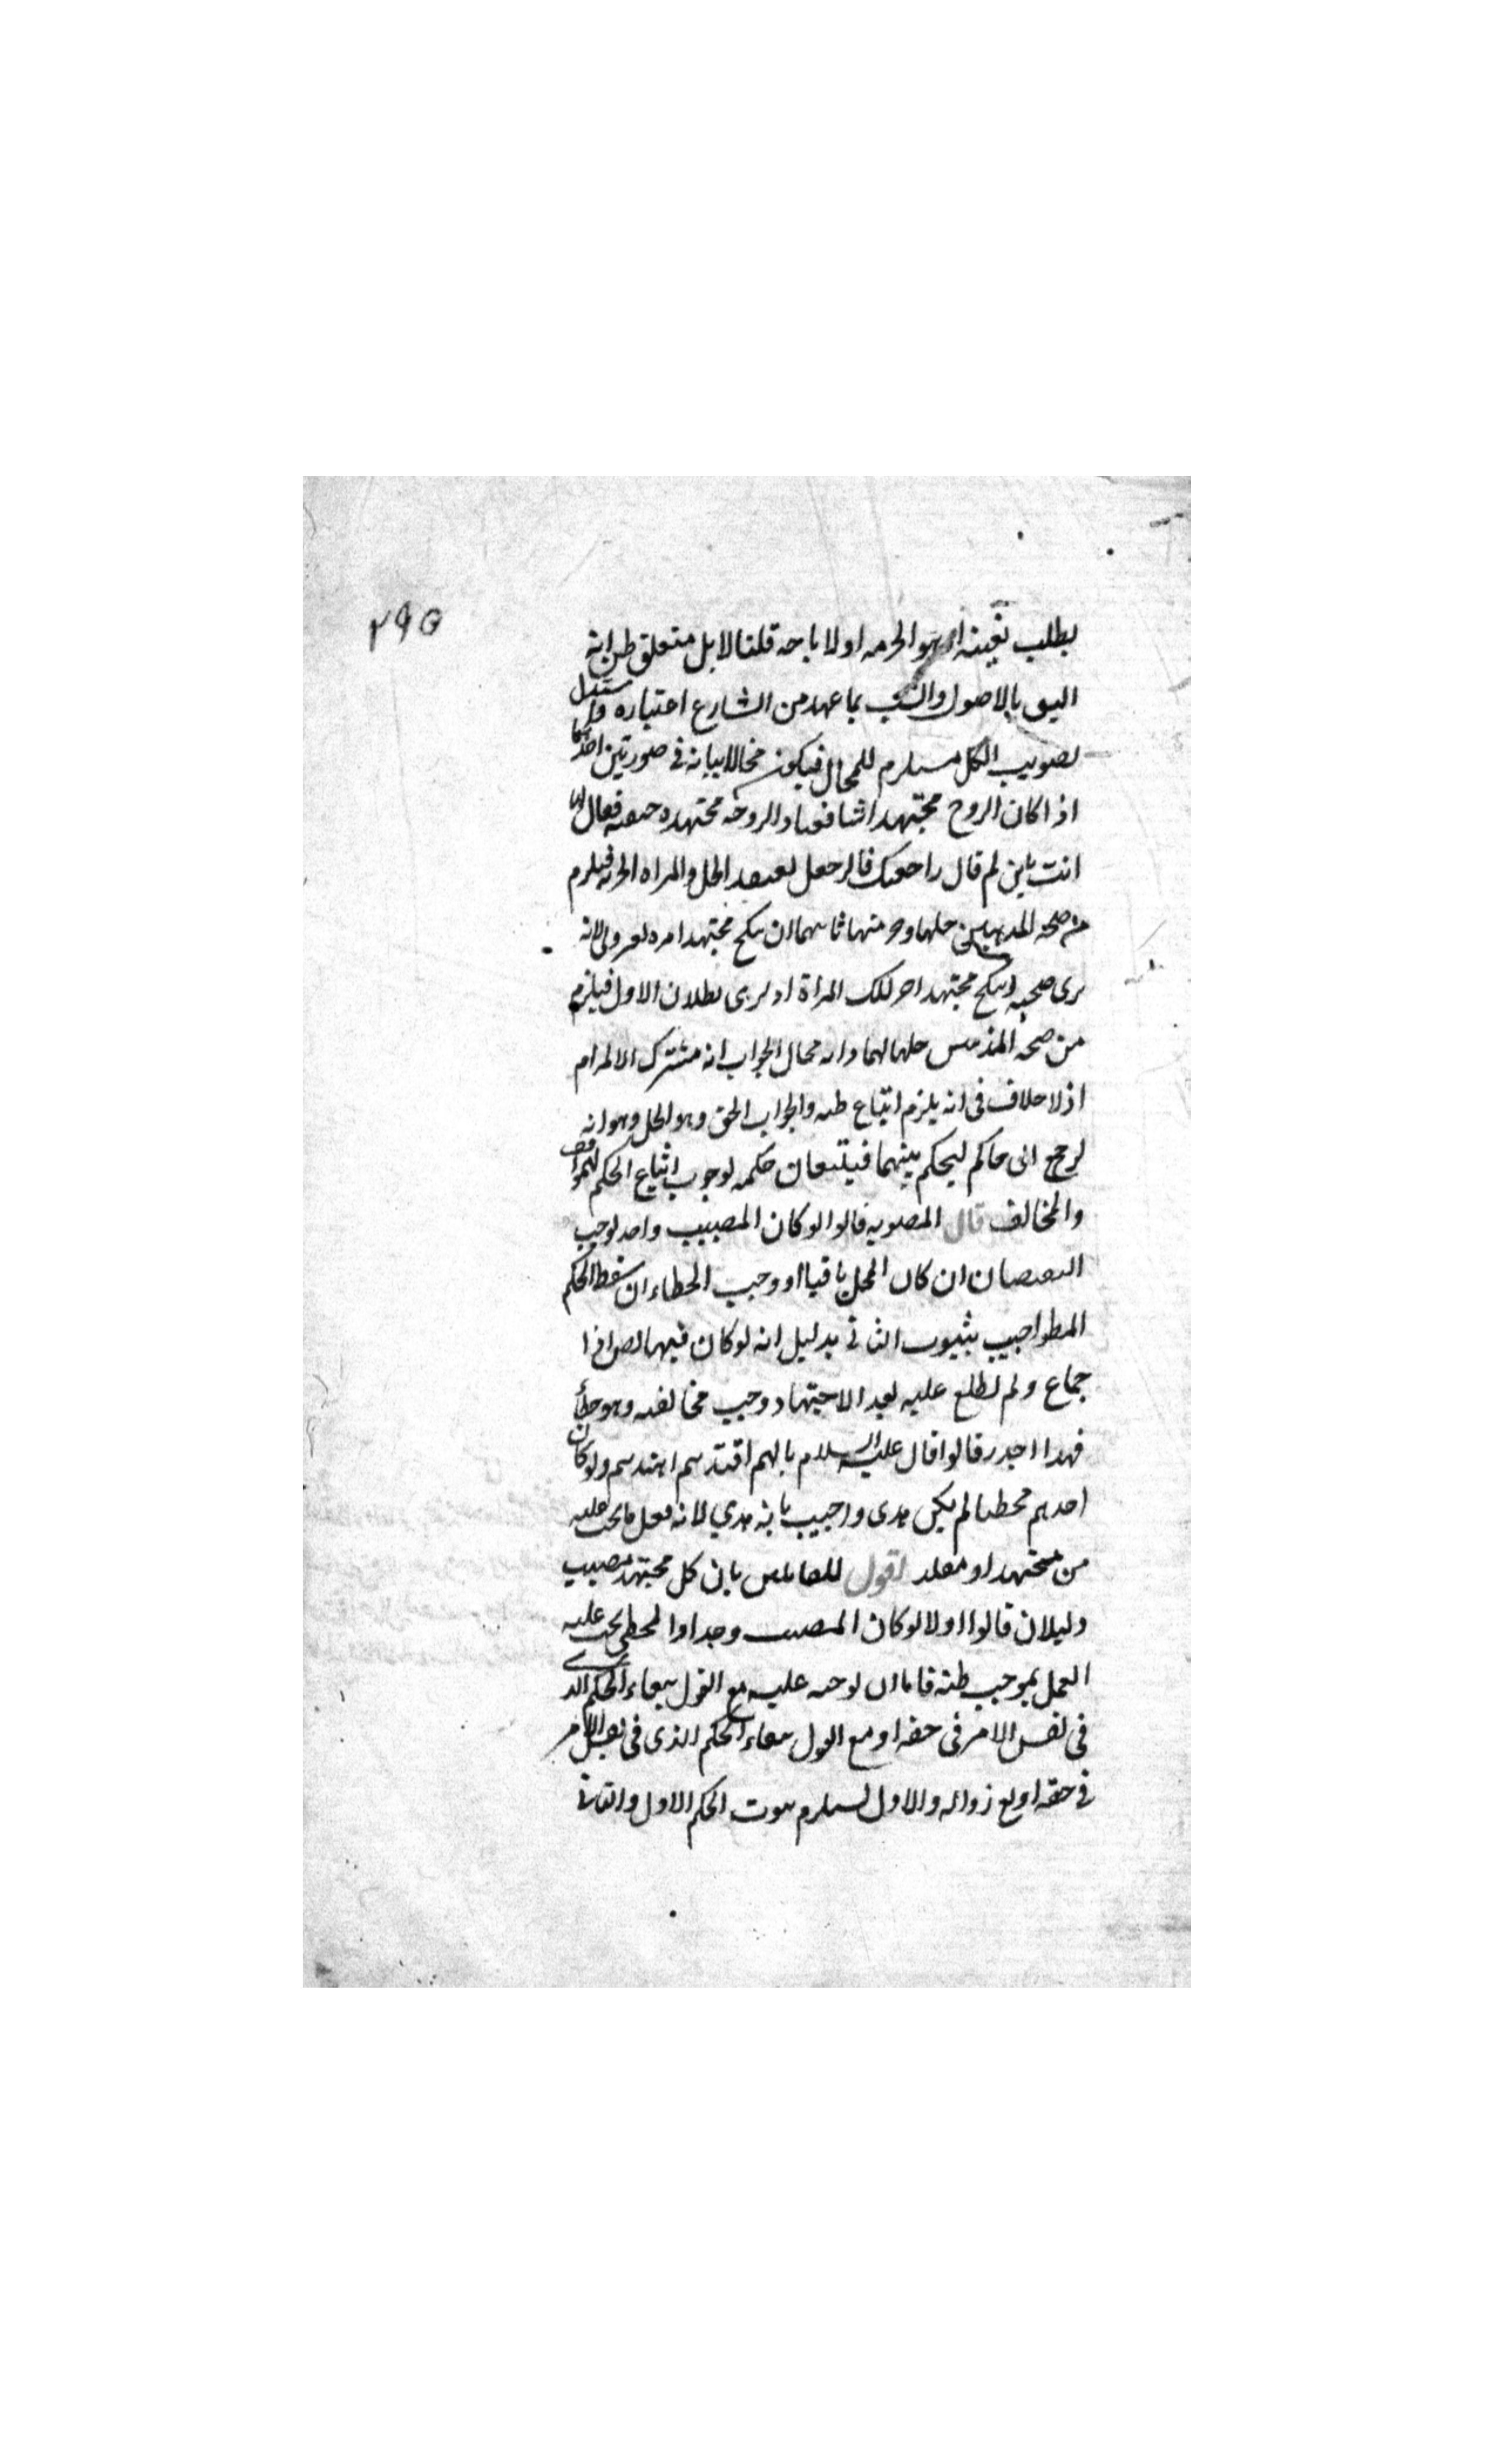 ٢٩٥
يطلب تعينه اهو الحرمه او الاباحه قلنا لا بل متعلق ظن انه
اليق بالاصول وانسب بما عهد من الشارع اعتباره واستدل
تصويب الكل مستلزم للمحال فيكون محالا بيانه في صورتين احدهما
اذا كان الزوج مجتهدا شافعيا والزوجه مجتهده حنفيه فقال لها
انت باين ثم قال راجعتك فالرجل يعتقد الحل والمراه الحرمه فيلزم
من صحه المذهبين حلها وحرمتها ثانيهما ان ينكح مجتهد امراه بغير ولي لانه
يرى صحته وينكح مجتهد اخر تلك المراة اذ يرى بطلان الاول فيلزم
من صحه المذهبين حلها لهما وانه محال الجواب انه مشترك الالزام
اذ لا خلاف في انه يلزم اتباع ظنه والجواب الحق وهو الحل وهو انه
يرجع الى حاكم ليحكم بينهما فيتبعان حكمه لوجوب اتباع الحكم للموافق
والمخالف قال المصوبه قالوا لو كان المصيب واحد لوجب
النقيضان ان كان المحل باقيا او وجب الخطاء ان سقط الحكم
المط واجيب بثبوت الثاني بدليل انه لو كان فيها نص او ا
جماع ولم يطلع عليه بعد الاجتهاد وجب مخالفته وهو خطأ
فهذا اجدر قالوا قال عليه السلام بايهم اقتديتم اهتديتم ولو كان
احدهم مخطيا لم يكن هدى واجيب بانه هدي لانه فعل ما يجب عليه
من مجتهد او مقلد اقول للقائلين بان كل مجتهد مصيب
دليلان قالوا اولا لو كان المصيب واحدا والمخطي يجب عليه
العمل بموجب ظنه فاما ان يوجبه عليه مع القول ببقاء الحكم الذي
في نفس الامر في حقه او مع القول ببقاء الحكم الذي في نفس الامر
في حقه او مع زواله والاول يستلزم ثبوت الحكم الاول والثاني